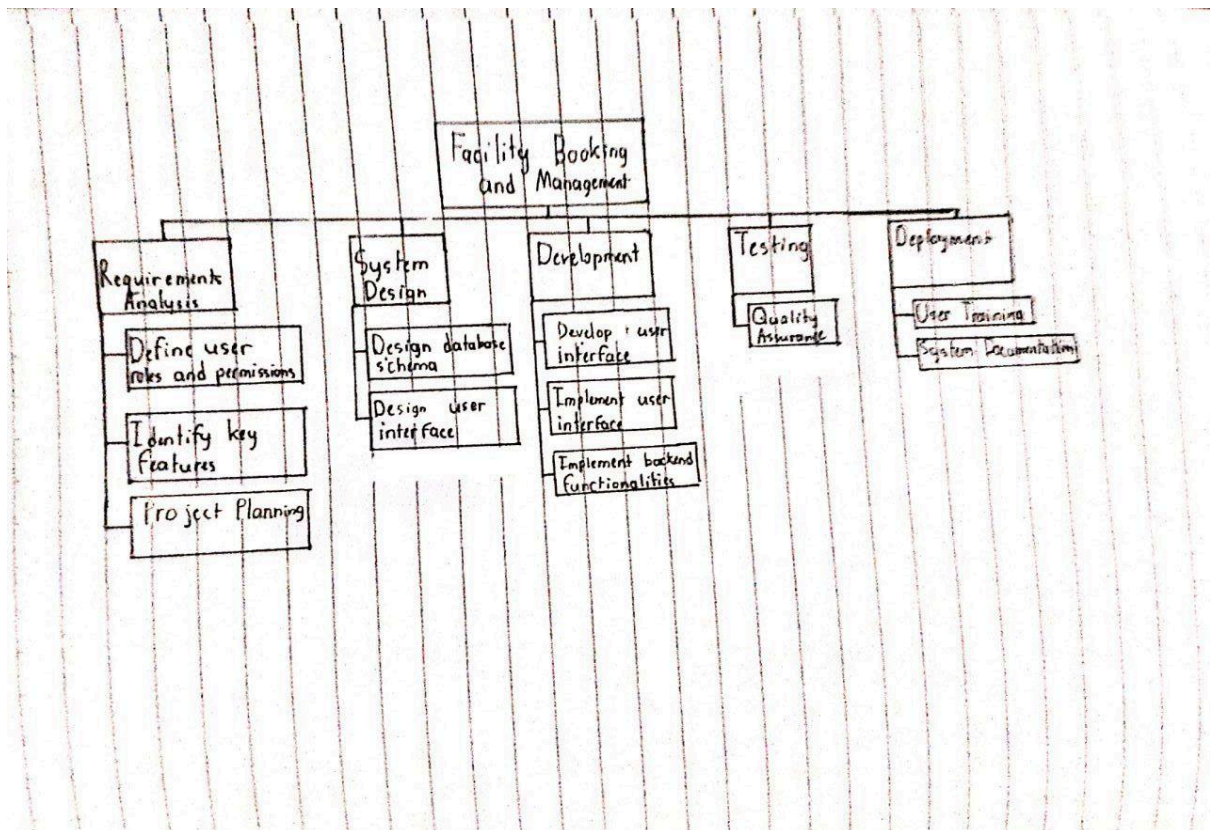 Facility Booking
and Management
Requirements
Analysis
Define user
roles and permissions
Identify key
features
Project Planning
System
Design
Design database
schema
Design user
interface
Development
Develop user
interface
Implement user
interface
Implement backend
functionalities
Testing
Quality
Assurance
Deployment
User Training
System Documentation